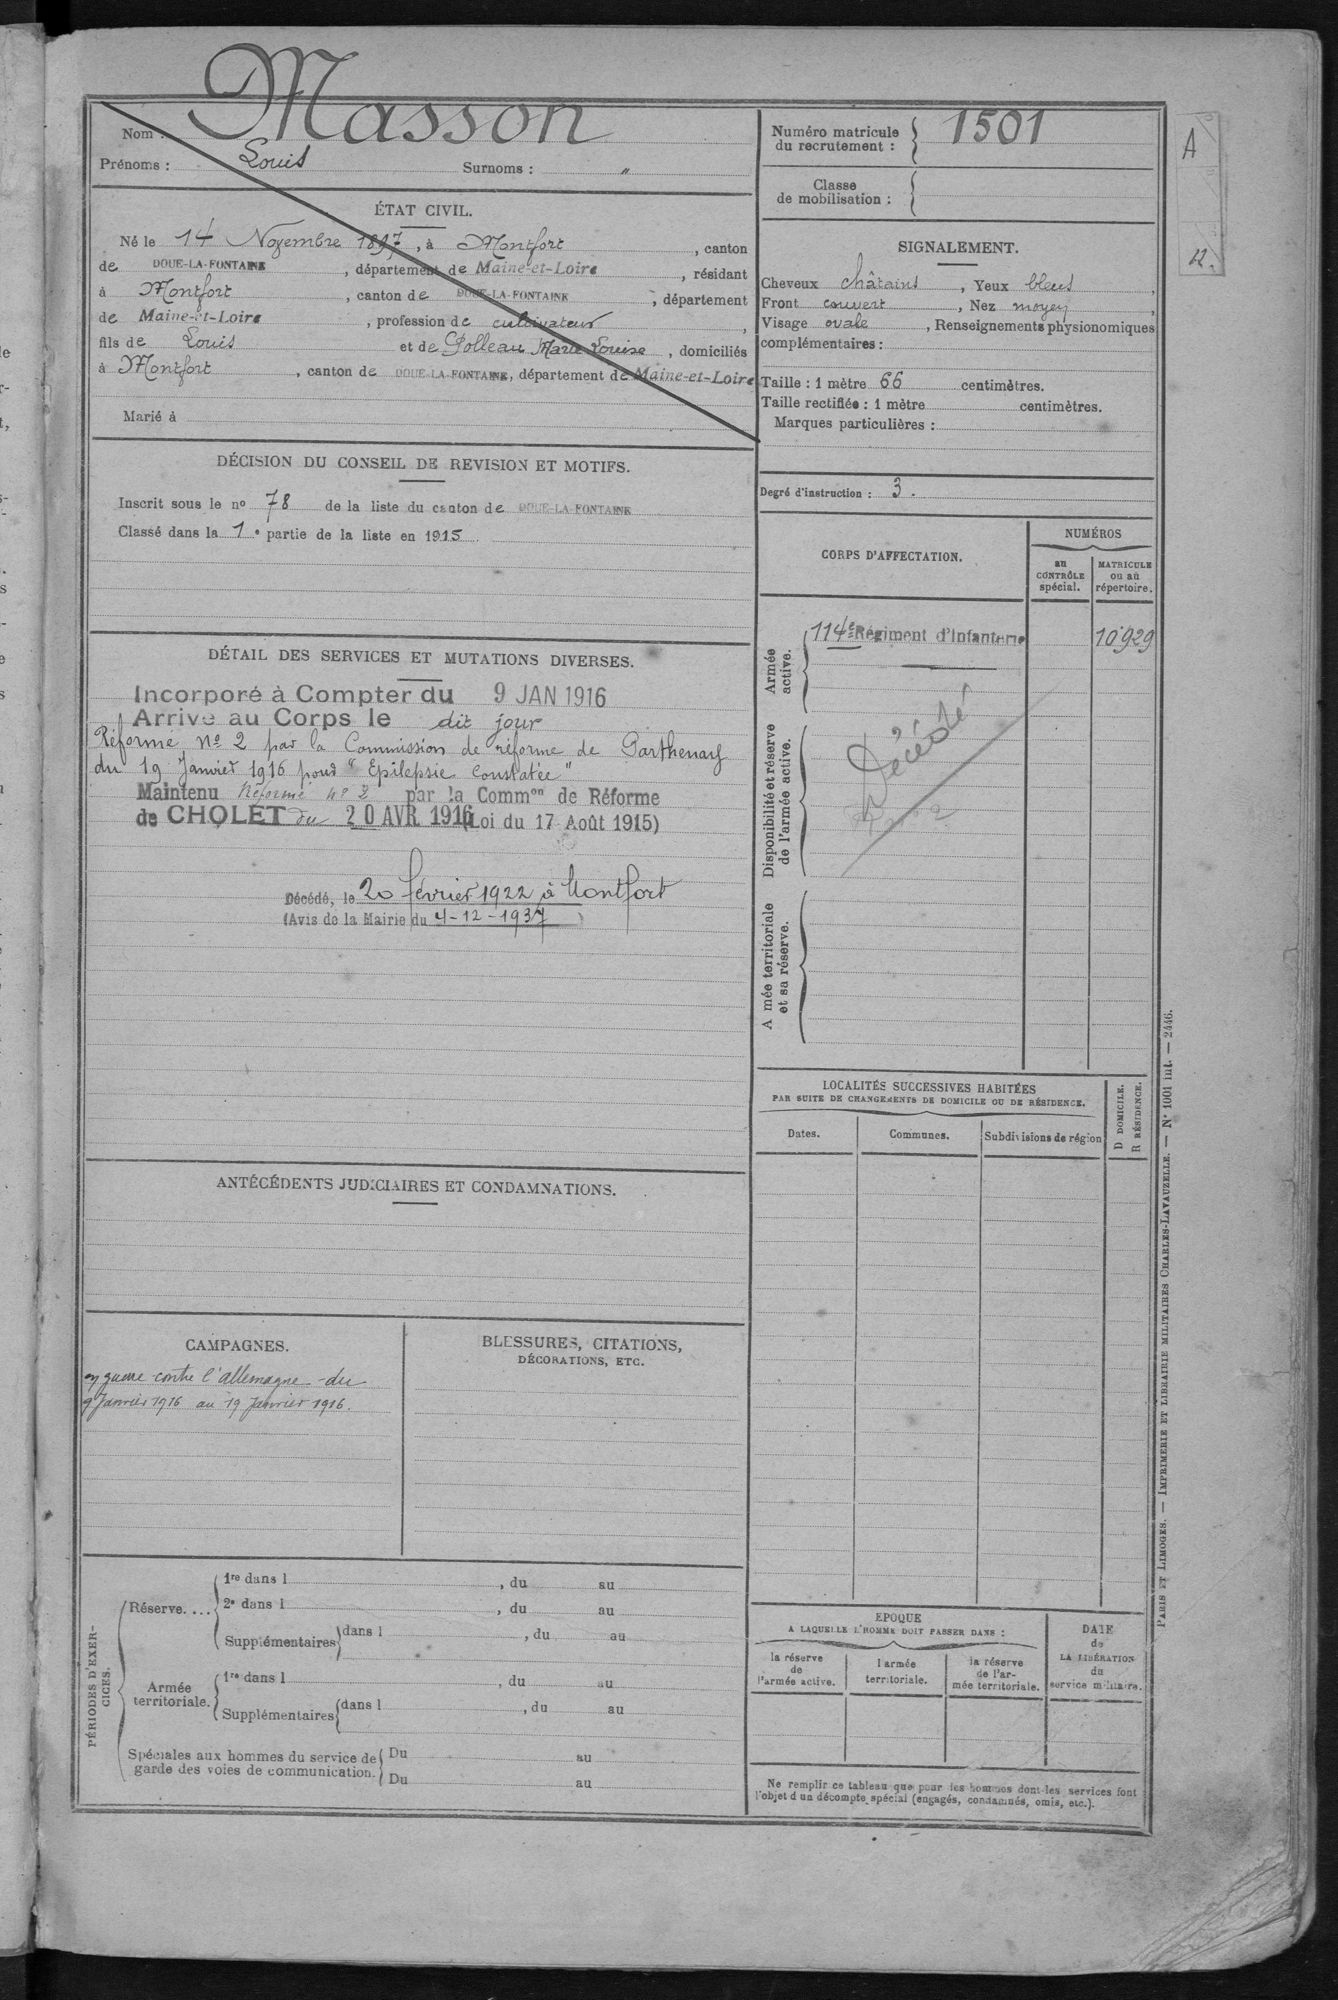 Nom : Masson
Prénoms : Louis Surnoms : "
ÉTAT CIVIL.
Né le 14 Novembre 1897, à Montfort, canton
de DOUE-LA-FONTAINE, département de Maine-et-Loire, résidant
à Montfort, canton de DOUE-LA-FONTAINE, département
de Maine-et-Loire, profession de cultivateur,
fils de Louis et de Golleau Marie Louise, domiciliés
à Montfort, canton de DOUE-LA-FONTAINE, département de Maine-et-Loire
Marié à
DÉCISION DU CONSEIL DE REVISION ET MOTIFS.
Inscrit sous le no 78 de la liste du canton de DOUE-LA-FONTAINE
Classé dans la 1e partie de la liste en 1915.
DÉTAIL DES SERVICES ET MUTATIONS DIVERSES.
Incorporé à Compter du 9 JAN 1916
Arrivé au Corps le dit jour
Réformé No 2 par la Commission de réforme de Parthenay
du 19 Janvier 1916 pour "Epilepsie constatée"
Maintenu Réformé no 2 par la Common de Réforme
de CHOLET du 20 AVR 1916 (Loi du 17 Août 1915)
Décédé, le 20 février 1922 à Montfort
(Avis de la Mairie du 4-12-1937)
ANTÉCÉDENTS JUDICIAIRES ET CONDAMNATIONS.
CAMPAGNES.
guerre contre l'allemagne du
9 Janvier 1916 au 19 Janvier 1916.
BLESSURES, CITATIONS,
DÉCORATIONS, ETC.
PÉRIODES D'EXER-
CICES.
Réserve....
1re dans l , du au
2e dans l , du au
Supplémentaires dans l , du au
Armée
territoriale.
1re dans l , du au
Supplémentaires dans l , du au
Spéciales aux hommes du service de
garde des voies de communication.
Du au
Du au
Numéro matricule
du recrutement : 1501
Classe
de mobilisation :
SIGNALEMENT.
Cheveux châtains, Yeux bleus,
Front couvert, Nez moyen,
Visage ovale, Renseignements physionomiques
complémentaires :
Taille : 1 mètre 66 centimètres.
Taille rectifiée : 1 mètre centimètres.
Marques particulières :
Degré d'instruction : 3.
CORPS D'AFFECTATION.
NUMÉROS
au
CONTRÔLE
spécial.
MATRICULE
ou au
répertoire.
Armée
active.
114e Régiment d'Infanterie 10929
Disponibilité et réserve
de l'armée active.
Décédé
A mée territoriale
et sa réserve.
LOCALITÉS SUCCESSIVES HABITÉES
PAR SUITE DE CHANGEMENTS DE DOMICILE OU DE RÉSIDENCE.
Dates. Communes. Subdivisions de région
D DOMICILE.
R RÉSIDENCE.
EPOQUE
A LAQUELLE L'HOMME DOIT PASSER DANS :
la réserve
de
l'armée active.
l armée
territoriale.
la réserve
de l'ar-
mée territoriale.
DATE
de
LA LIBÉRATION
du
service militaire.
Ne remplir ce tableau que pour les hommes dont les services font
l'objet d un décompte spécial (engagés, condamnés, omis, etc.).
PARIS ET LIMOGES. — IMPRIMERIE ET LIBRAIRIE MILITAIRES CHARLES-LAVAUZELLE. — No 1001 int. — 2446.
A
12.